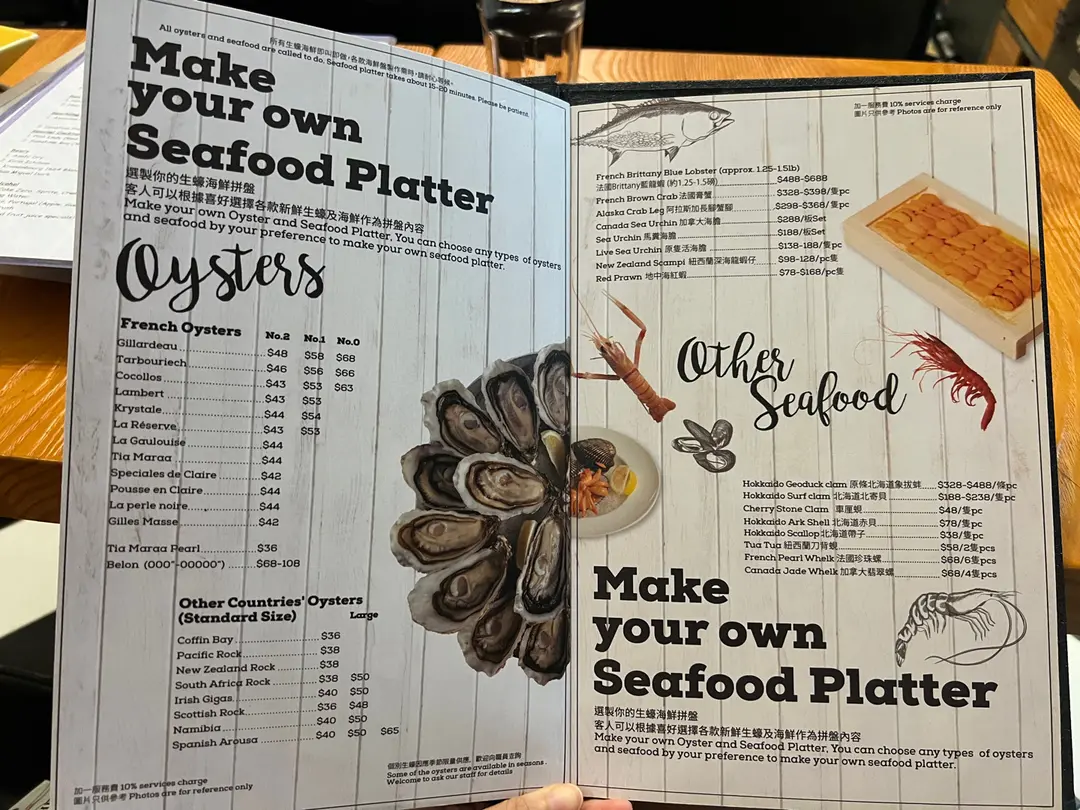 所有生蠔海鮮即叫即做,各款海鮮盤製作需時,請耐心等候。
All oysters and seafood are called to do. Seafood platter takes about 15-20 minutes. Please be patient.
Make
your own
Seafood Platter
選製你的生蠔海鮮拼盤
客人可以根據喜好選擇各款新鮮生蠔及海鮮作為拼盤內容
Make your own Oyster and Seafood Platter. You can choose any types of oysters
and seafood by your preference to make your own seafood platter.
Oysters
French Oysters No.2 No.1 No.0
Gillardeau $48 $58 $68
Tarbouriech $46 $56 $66
Cocollos $43 $53 $63
Lambert $43 $53
Krystale $44 $54
La Réserve $43 $53
La Gaulouise $44
Tia Maraa $44
Speciales de Claire $42
Pousse en Claire $44
La perle noire $44
Gilles Masse $42
Tia Maraa Pearl $36
Belon (000"-00000") $68-108
Other Countries' Oysters
(Standard Size) Large
Coffin Bay $36
Pacific Rock $38
New Zealand Rock $38
South Africa Rock $38 $50
Irish Gigas $40 $50
Scottish Rock $36 $48
Namibia $40 $50
Spanish Arousa $40 $50 $65
個別生蠔因應季節限量供應, 歡迎向職員查詢
Some of the oysters are available in seasons.
Welcome to ask our staff for details
加一服務費 10% services charge
圖片只供參考 Photos are for reference only
加一服務費 10% services charge
圖片只供參考 Photos are for reference only
French Brittany Blue Lobster (approx. 1.25-1.5lb)
法國Brittany藍龍蝦 (約1.25-1.5磅) $488-$688
French Brown Crab 法國膏蟹 $328-$398/隻pc
Alaska Crab Leg 阿拉斯加長腳蟹腳 $298-$368/隻pc
Canada Sea Urchin 加拿大海膽 $288/板Set
Sea Urchin 馬糞海膽 $188/板Set
Live Sea Urchin 原隻活海膽 $138-188/隻pc
New Zealand Scampi 紐西蘭深海龍蝦仔 $98-128/pc隻
Red Prawn 地中海紅蝦 $78-$168/pc隻
Other
Seafood
Hokkaido Geoduck clam 原條北海道象拔蚌 $328-$488/條pc
Hokkaido Surf clam 北海道北寄貝 $188-$238/隻pc
Cherry Stone Clam 車厘蜆 $48/隻pc
Hokkaido Ark Shell 北海道赤貝 $78/隻pc
Hokkaido Scallop 北海道帶子 $38/隻pc
Tua Tua 紐西蘭刀背蜆 $58/2隻pcs
French Pearl Whelk 法國珍珠螺 $68/6隻pcs
Canada Jade Whelk 加拿大翡翠螺 $68/4隻pcs
Make
your own
Seafood Platter
選製你的生蠔海鮮拼盤
客人可以根據喜好選擇各款新鮮生蠔及海鮮作為拼盤內容
Make your own Oyster and Seafood Platter. You can choose any types of oysters
and seafood by your preference to make your own seafood platter.